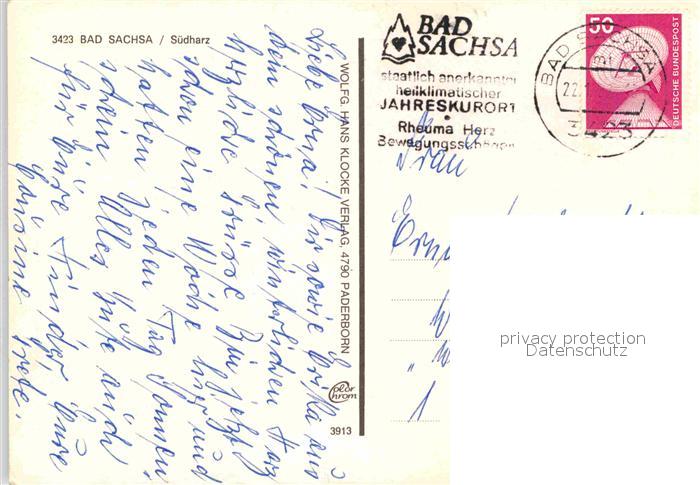 3423 BAD SACHSA / Südharz
Liebe Erna! Dir sowie Erika aus
dem schönen winterlichen Harz
herzliche Grüsse. Bin jetzt
schon eine Woche hier und
hatten jeden Tag Sonnen
schein. Alles Gute auch
für Eure Kinder, Eure
Cousine
WOLFG. HANS KLOCKE VERLAG, 4790 PADERBORN
Color
Chrom
3913
BAD
SACHSA
staatlich anerkannter
heilklimatischer
JAHRESKURORT
Rheuma Herz
BAD SACHSA
22.
3423
50
DEUTSCHE BUNDESPOST
Frau
1
privacy protection
Datenschutz